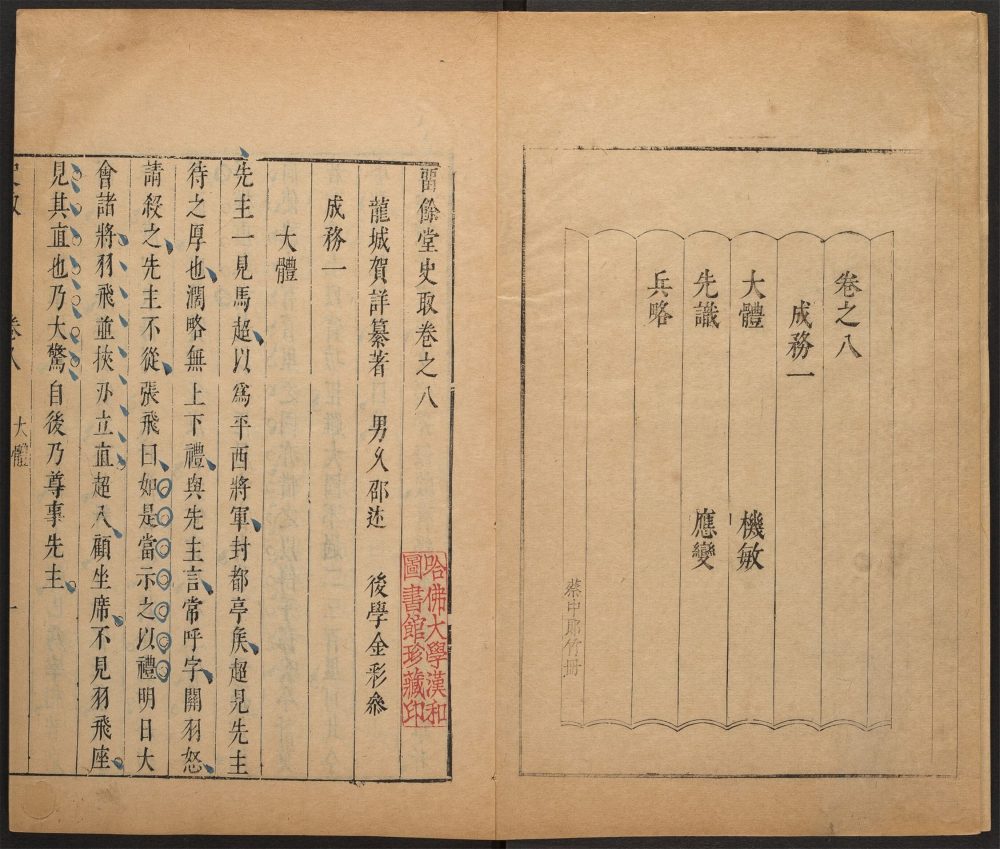 卷之八
成務一
大體 機敏
先識 應變
兵略
蔡中郎竹冊
留餘堂史取卷之八
龍城賀詳纂著 男久邵述 後學金彩參
成務一
大體
先主一見馬超以為平西將軍封都亭矦超見先主
待之厚也濶略無上下禮與先主言常呼字關羽怒
請殺之先主不從張飛曰如是當示之以禮明日大
會諸將羽飛並挾刀立直超入顧坐席不見羽飛座
見其直也乃大驚自後乃尊事先主
卷八 大體 一
哈佛大學漢和
圖書館珍藏印